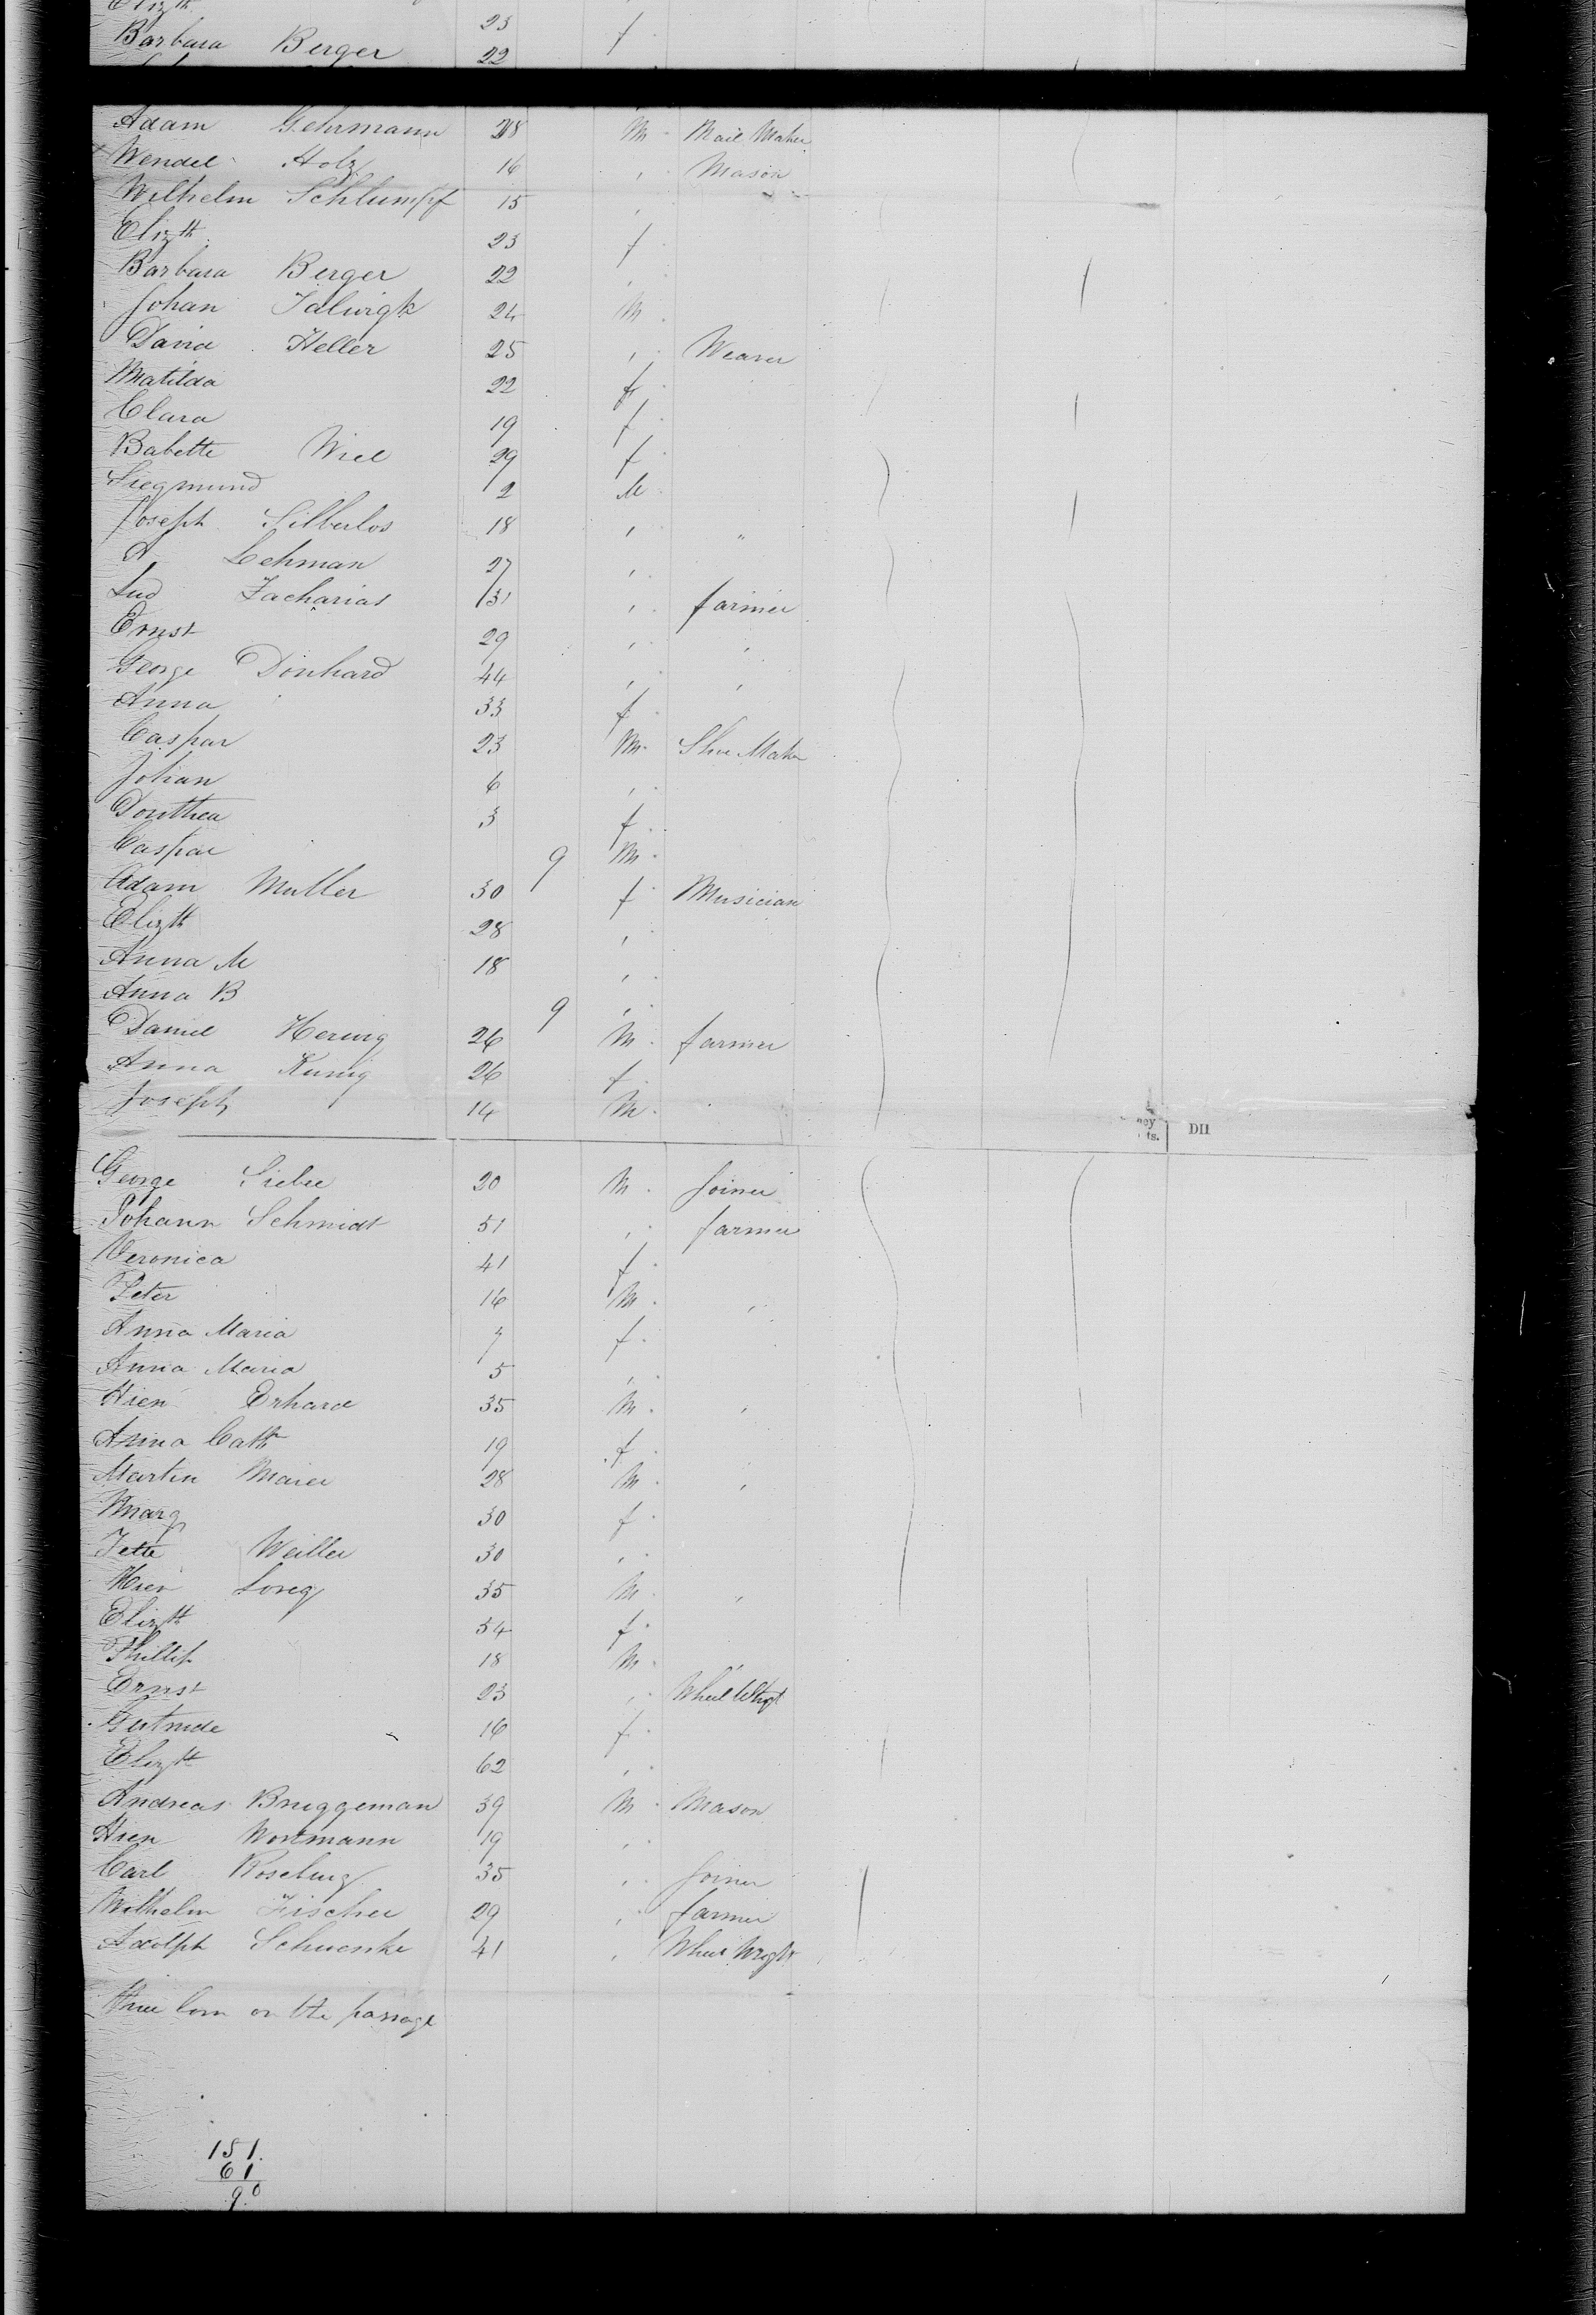 Elizth 23 f
Barbara Berger 22
Adam Gehrmann 28 M Nail Maker
Wendel Holz 16 , Mason
Wilhelm Schlumpf 15 ,
Elizth 23 f
Barbara Berger 22 ,
Johan 24 M
David Heller 25 , Weaver
Matilda 22 f
Clara 19 f
Babette Wiel 29 f
Siegmund 2 M
Joseph Silberlos 18 , "
A Lehman 27 ,
Lud Zacharias 31 , farmer
Ernst 29 , ,
George Donhard 44 , ,
Anna 33 f
Caspar 23 M Shoe Maker
Johan 6 ,
Dorothea 3 f
Caspar 9 M
Adam Muller 30 f Musician
Elizth 28 ,
Anna M 18 ,
Anna B 9 ,
Daniel Herwig 26 M farmer
Anna Kunig 26 f
Joseph 14 M
ney
ts. DII
George Sieber 20 M Joiner
Johann Schmidt 51 , farmer
Veronica 41 f
Peter 16 M ,
Anna Maria 7 f
Anna Maria 5 ,
Hien Erhard 35 M ,
Anna Cath 19 f
Martin Maier 28 M ,
Marg 30 f
Jette Weiller 30 ,
Hien Loreg 35 M ,
Elizth 54 f
Phillip 18 M ,
Ernst 23 , Wheel Whgt
Gertrude 16 f
Elizth 62 ,
Andreas Bruggeman 39 M Mason
Hien Wortmann 19 ,
Carl Roseburg 35 , Joiner
Wilhelm Fischer 29 , farmer
Adolph Schwenke 41 , Wheel Wright
three born on the passage
151.
61
90